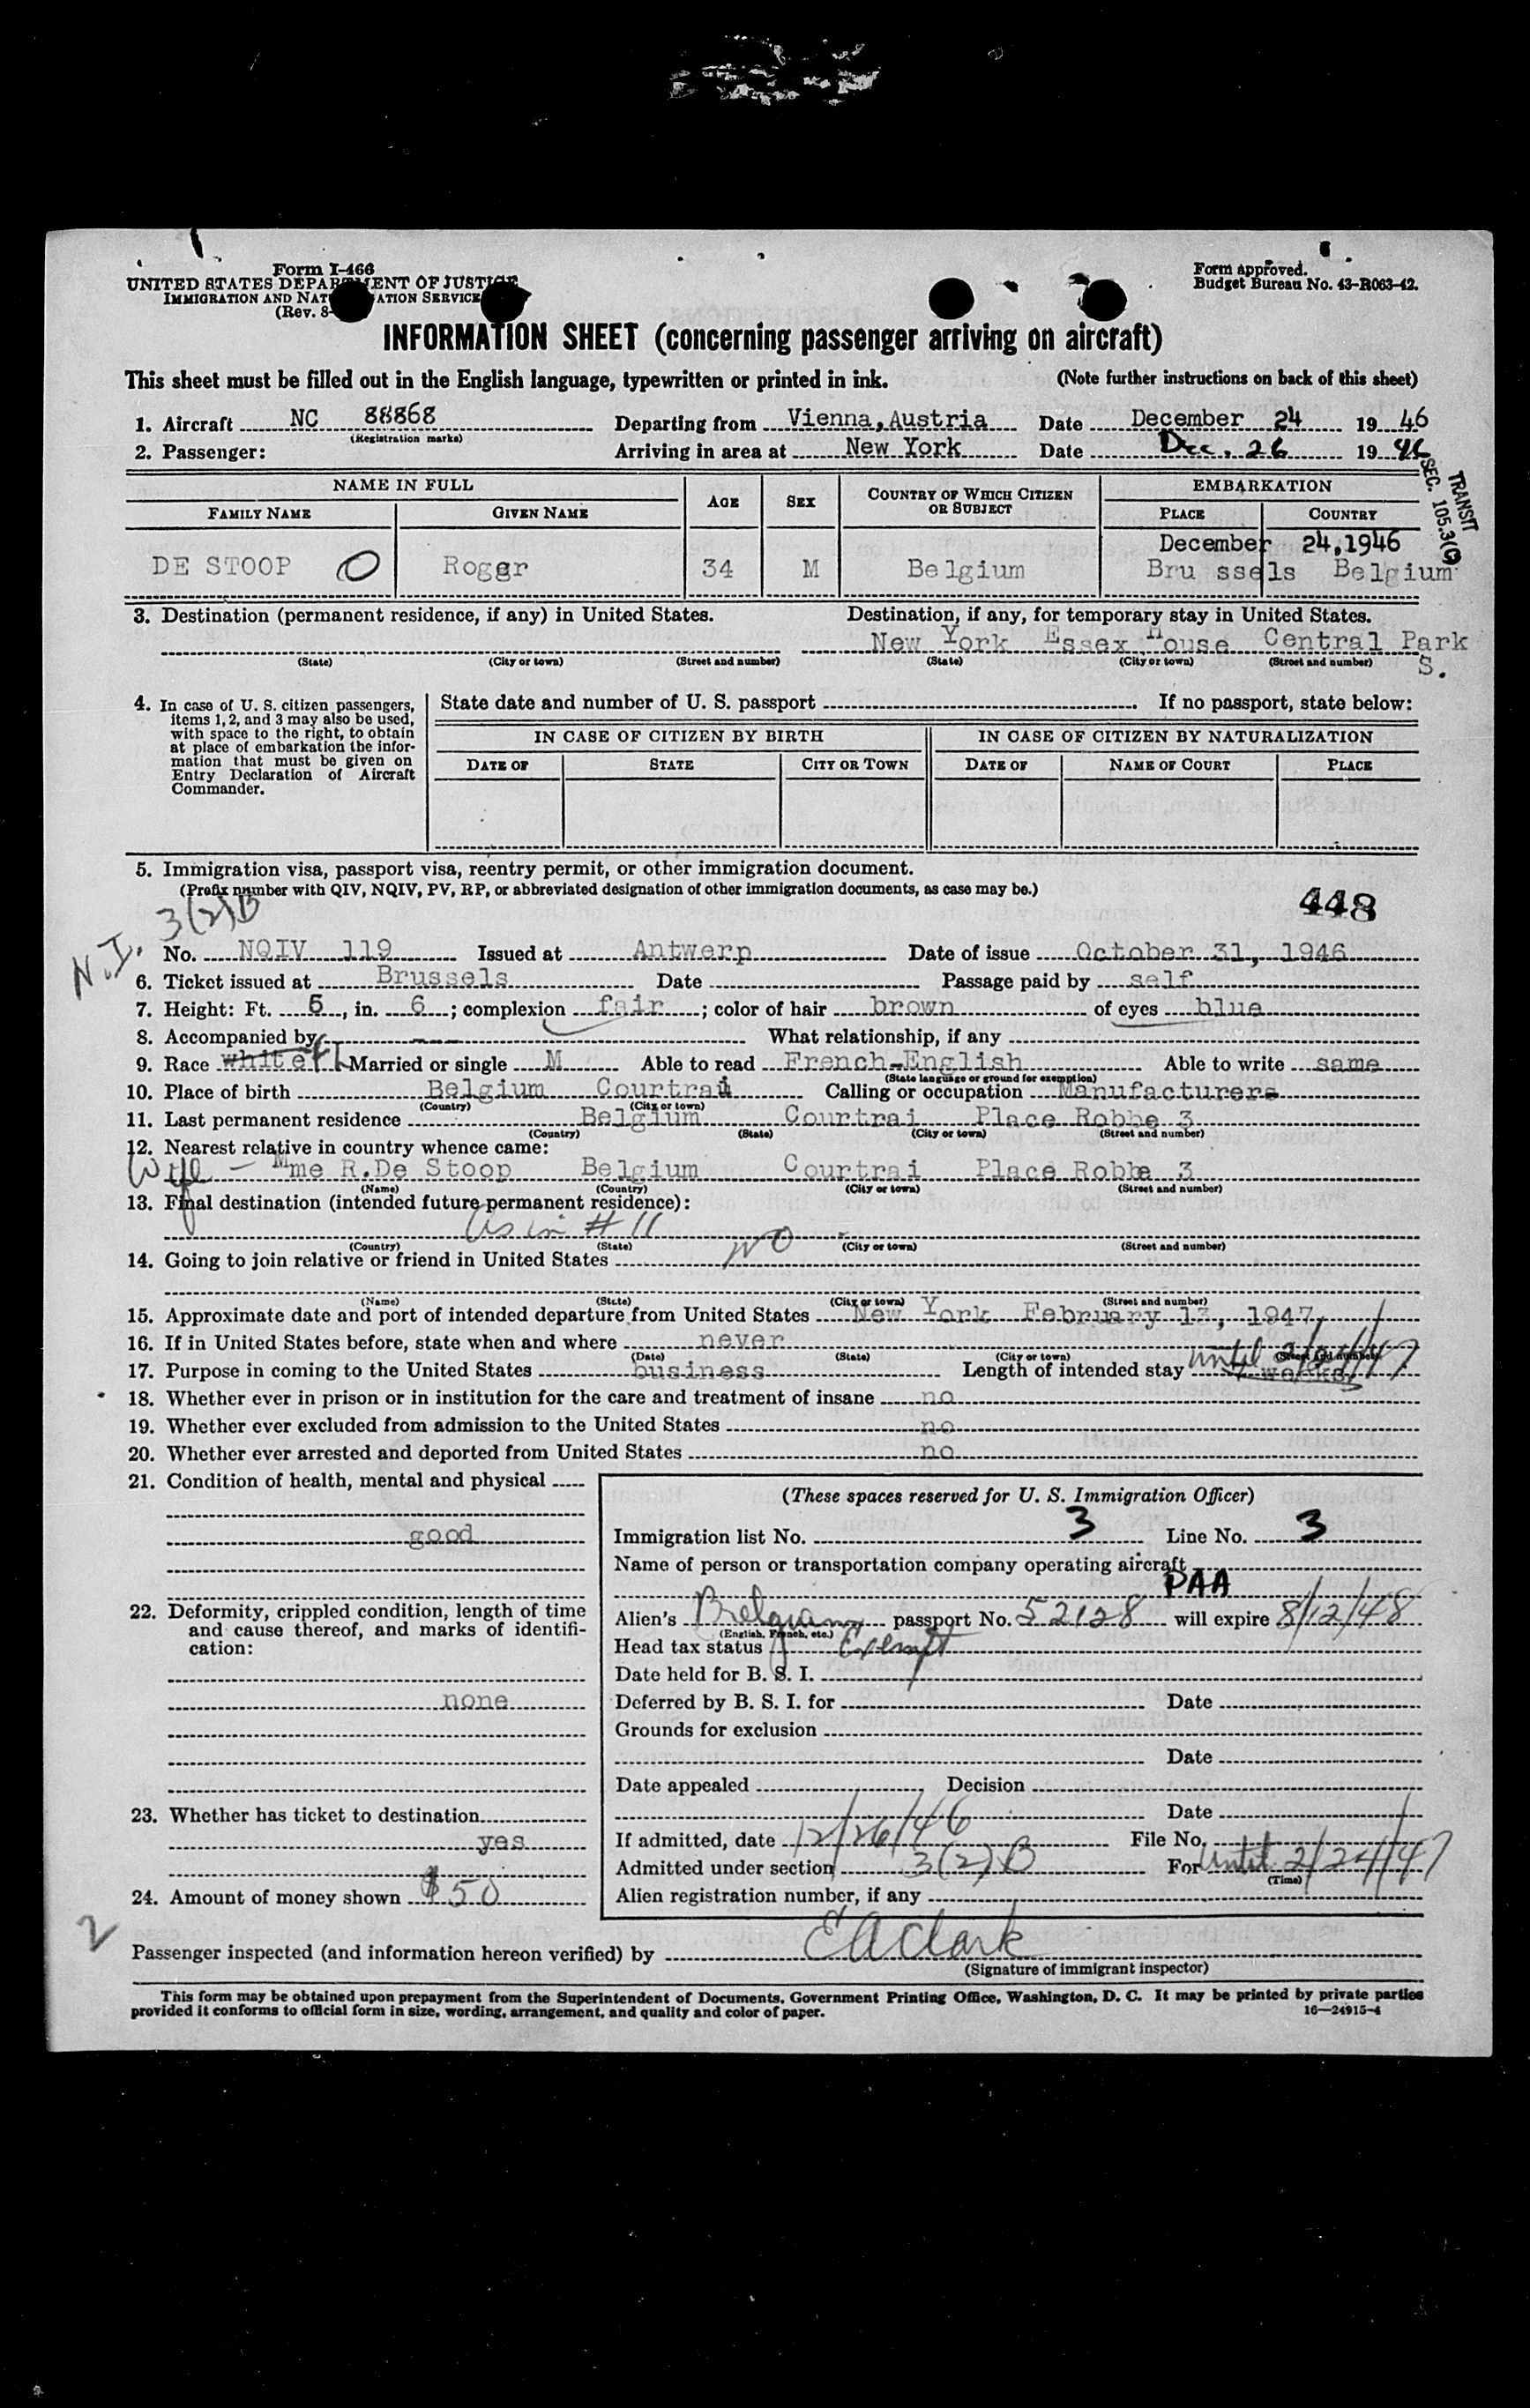 Form I-466
UNITED STATES DEPARTMENT OF JUSTICE
IMMIGRATION AND NAT ATION SERVICE
(Rev. 8-
Form approved.
Budget Bureau No. 43-R063-42.
INFORMATION SHEET (concerning passenger arriving on aircraft)
This sheet must be filled out in the English language, typewritten or printed in ink. (Note further instructions on back of this sheet)
1. Aircraft NC 88868 Departing from Vienna, Austria Date December 24 1946
(Registration marks)
2. Passenger: Arriving in area at New York Date Dec. 26 1946
TRANSIT
SEC. 105.3(C)
NAME IN FULL AGE SEX COUNTRY OF WHICH CITIZEN OR SUBJECT EMBARKATION
FAMILY NAME GIVEN NAME PLACE COUNTRY
December 24,1946
DE STOOP O Roger 34 M Belgium Bru ssels Belgium
3. Destination (permanent residence, if any) in United States. Destination, if any, for temporary stay in United States.
New York Essex House Central Park S.
(State) (City or town) (Street and number) (State) (City or town) (Street and number)
4. In case of U. S. citizen passengers, items 1, 2, and 3 may also be used, with space to the right, to obtain at place of embarkation the information that must be given on Entry Declaration of Aircraft Commander.
State date and number of U. S. passport . If no passport, state below:
IN CASE OF CITIZEN BY BIRTH IN CASE OF CITIZEN BY NATURALIZATION
DATE OF STATE CITY OR TOWN DATE OF NAME OF COURT PLACE
5. Immigration visa, passport visa, reentry permit, or other immigration document.
(Prefix number with QIV, NQIV, PV, RP, or abbreviated designation of other immigration documents, as case may be.)
448
N.I. 3(2)B
No. NQIV 119 Issued at Antwerp Date of issue October 31, 1946
6. Ticket issued at Brussels Date Passage paid by self
7. Height: Ft. 5, in. 6; complexion fair; color of hair brown of eyes blue
8. Accompanied by --- What relationship, if any
9. Race white Married or single M Able to read French-English Able to write same
(State language or ground for exemption)
10. Place of birth Belgium Courtrai Calling or occupation Manufacturers
(Country) (City or town)
11. Last permanent residence Belgium Courtrai Place Robbe 3
(Country) (State) (City or town) (Street and number)
12. Nearest relative in country whence came:
Wife - Mme R.De Stoop Belgium Courtrai Place Robbe 3
(Name) (Country) (City or town) (Street and number)
13. Final destination (intended future permanent residence):
As in # 11
(Country) (State) (City or town) (Street and number)
14. Going to join relative or friend in United States NO
(Name) (State) (City or town) (Street and number)
15. Approximate date and port of intended departure from United States New York February 13, 1947
16. If in United States before, state when and where never
(Date) (State) (City or town) (Street and number)
17. Purpose in coming to the United States business Length of intended stay until 2/24/47
18. Whether ever in prison or in institution for the care and treatment of insane no
19. Whether ever excluded from admission to the United States no
20. Whether ever arrested and deported from United States no
21. Condition of health, mental and physical
good
22. Deformity, crippled condition, length of time and cause thereof, and marks of identification:
none
23. Whether has ticket to destination
yes
24. Amount of money shown $50
(These spaces reserved for U. S. Immigration Officer)
Immigration list No. 3 Line No. 3
Name of person or transportation company operating aircraft
PAA
Alien's Belgian passport No. 52128 will expire 8/12/48
(English, French, etc.)
Head tax status Exempt
Date held for B. S. I.
Deferred by B. S. I. for Date
Grounds for exclusion
Date
Date appealed Decision
Date
If admitted, date 12/26/46 File No.
Admitted under section 3(2)B For Until 2/24/47
(Time)
Alien registration number, if any
2
Passenger inspected (and information hereon verified) by E A Clark
(Signature of immigrant inspector)
This form may be obtained upon prepayment from the Superintendent of Documents, Government Printing Office, Washington, D. C. It may be printed by private parties
provided it conforms to official form in size, wording, arrangement, and quality and color of paper. 16—24915-4